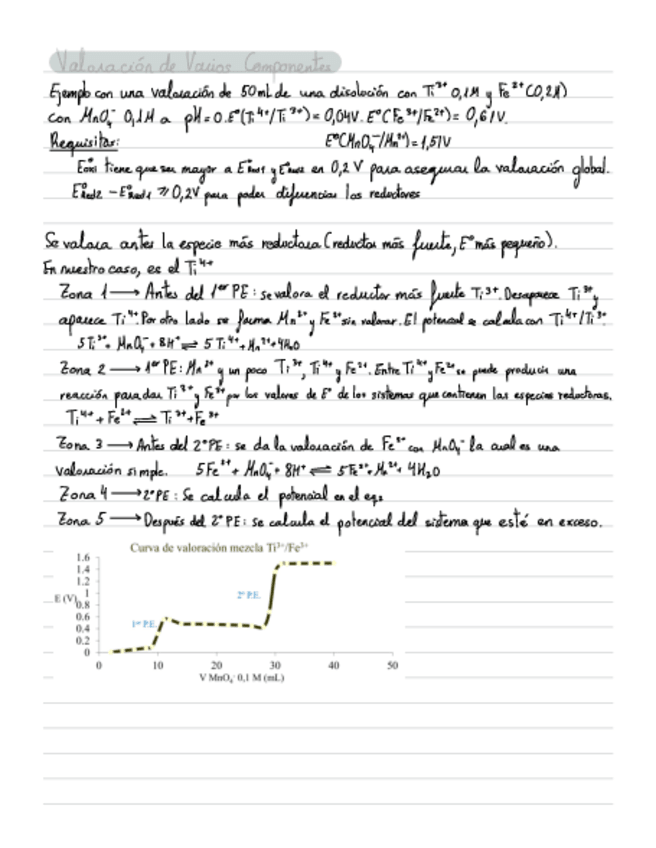 Valoración de Varios Componentes
Ejemplo con una valoración de 50 mL de una disolución con Ti³⁺ 0,1M y Fe²⁺ (0,2M)
con MnO₄⁻ 0,1M a pH=0. E°(Ti⁴⁺/Ti³⁺)=0,04V. E°(Fe³⁺/Fe²⁺)= 0,61V.
Requisitos: E°(MnO₄⁻/Mn²⁺)=1,51V
E°oxi tiene que ser mayor a E°Red1 y E°Red2 en 0,2 V para asegurar la valoración global.
E°Red2 - E°Red1 ≥ 0,2V para poder diferenciar los reductores
Se valora antes la especie más reductora (reductor más fuerte, E° más pequeño).
En nuestro caso, es el Ti⁴⁺
Zona 1 → Antes del 1er PE: se valora el reductor más fuerte Ti³⁺. Desaparece Ti³⁺ y
aparece Ti⁴⁺. Por otro lado se forma Mn²⁺ y Fe²⁺ sin valorar. El potencial se calcula con Ti⁴⁺/Ti³⁺.
5Ti³⁺ + MnO₄⁻ + 8H⁺ ⇌ 5Ti⁴⁺ + Mn²⁺ + 4H₂O
Zona 2 → 1er PE: Mn²⁺ y un poco Ti³⁺, Ti⁴⁺ y Fe²⁺. Entre Ti⁴⁺ y Fe²⁺ se puede producir una
reacción para dar Ti³⁺ y Fe³⁺ por los valores de E° de los sistemas que contienen las especies reductoras.
Ti⁴⁺ + Fe²⁺ ⇌ Ti³⁺ + Fe³⁺
Zona 3 → Antes del 2º PE: se da la valoración de Fe²⁺ con MnO₄⁻ la cual es una
valoración simple. 5Fe²⁺ + MnO₄⁻ + 8H⁺ ⇌ 5Fe³⁺ + Mn²⁺ + 4H₂O
Zona 4 → 2º PE: Se calcula el potencial en el eq2
Zona 5 → Después del 2º PE: se calcula el potencial del sistema que esté en exceso.
Curva de valoración mezcla Ti³⁺/Fe²⁺
1.6
1.4
1.2
1
E (V)
0.8
0.6
0.4
0.2
0
2º P.E.
1er P.E.
0 10 20 30 40 50
V MnO₄⁻ 0,1 M (mL)